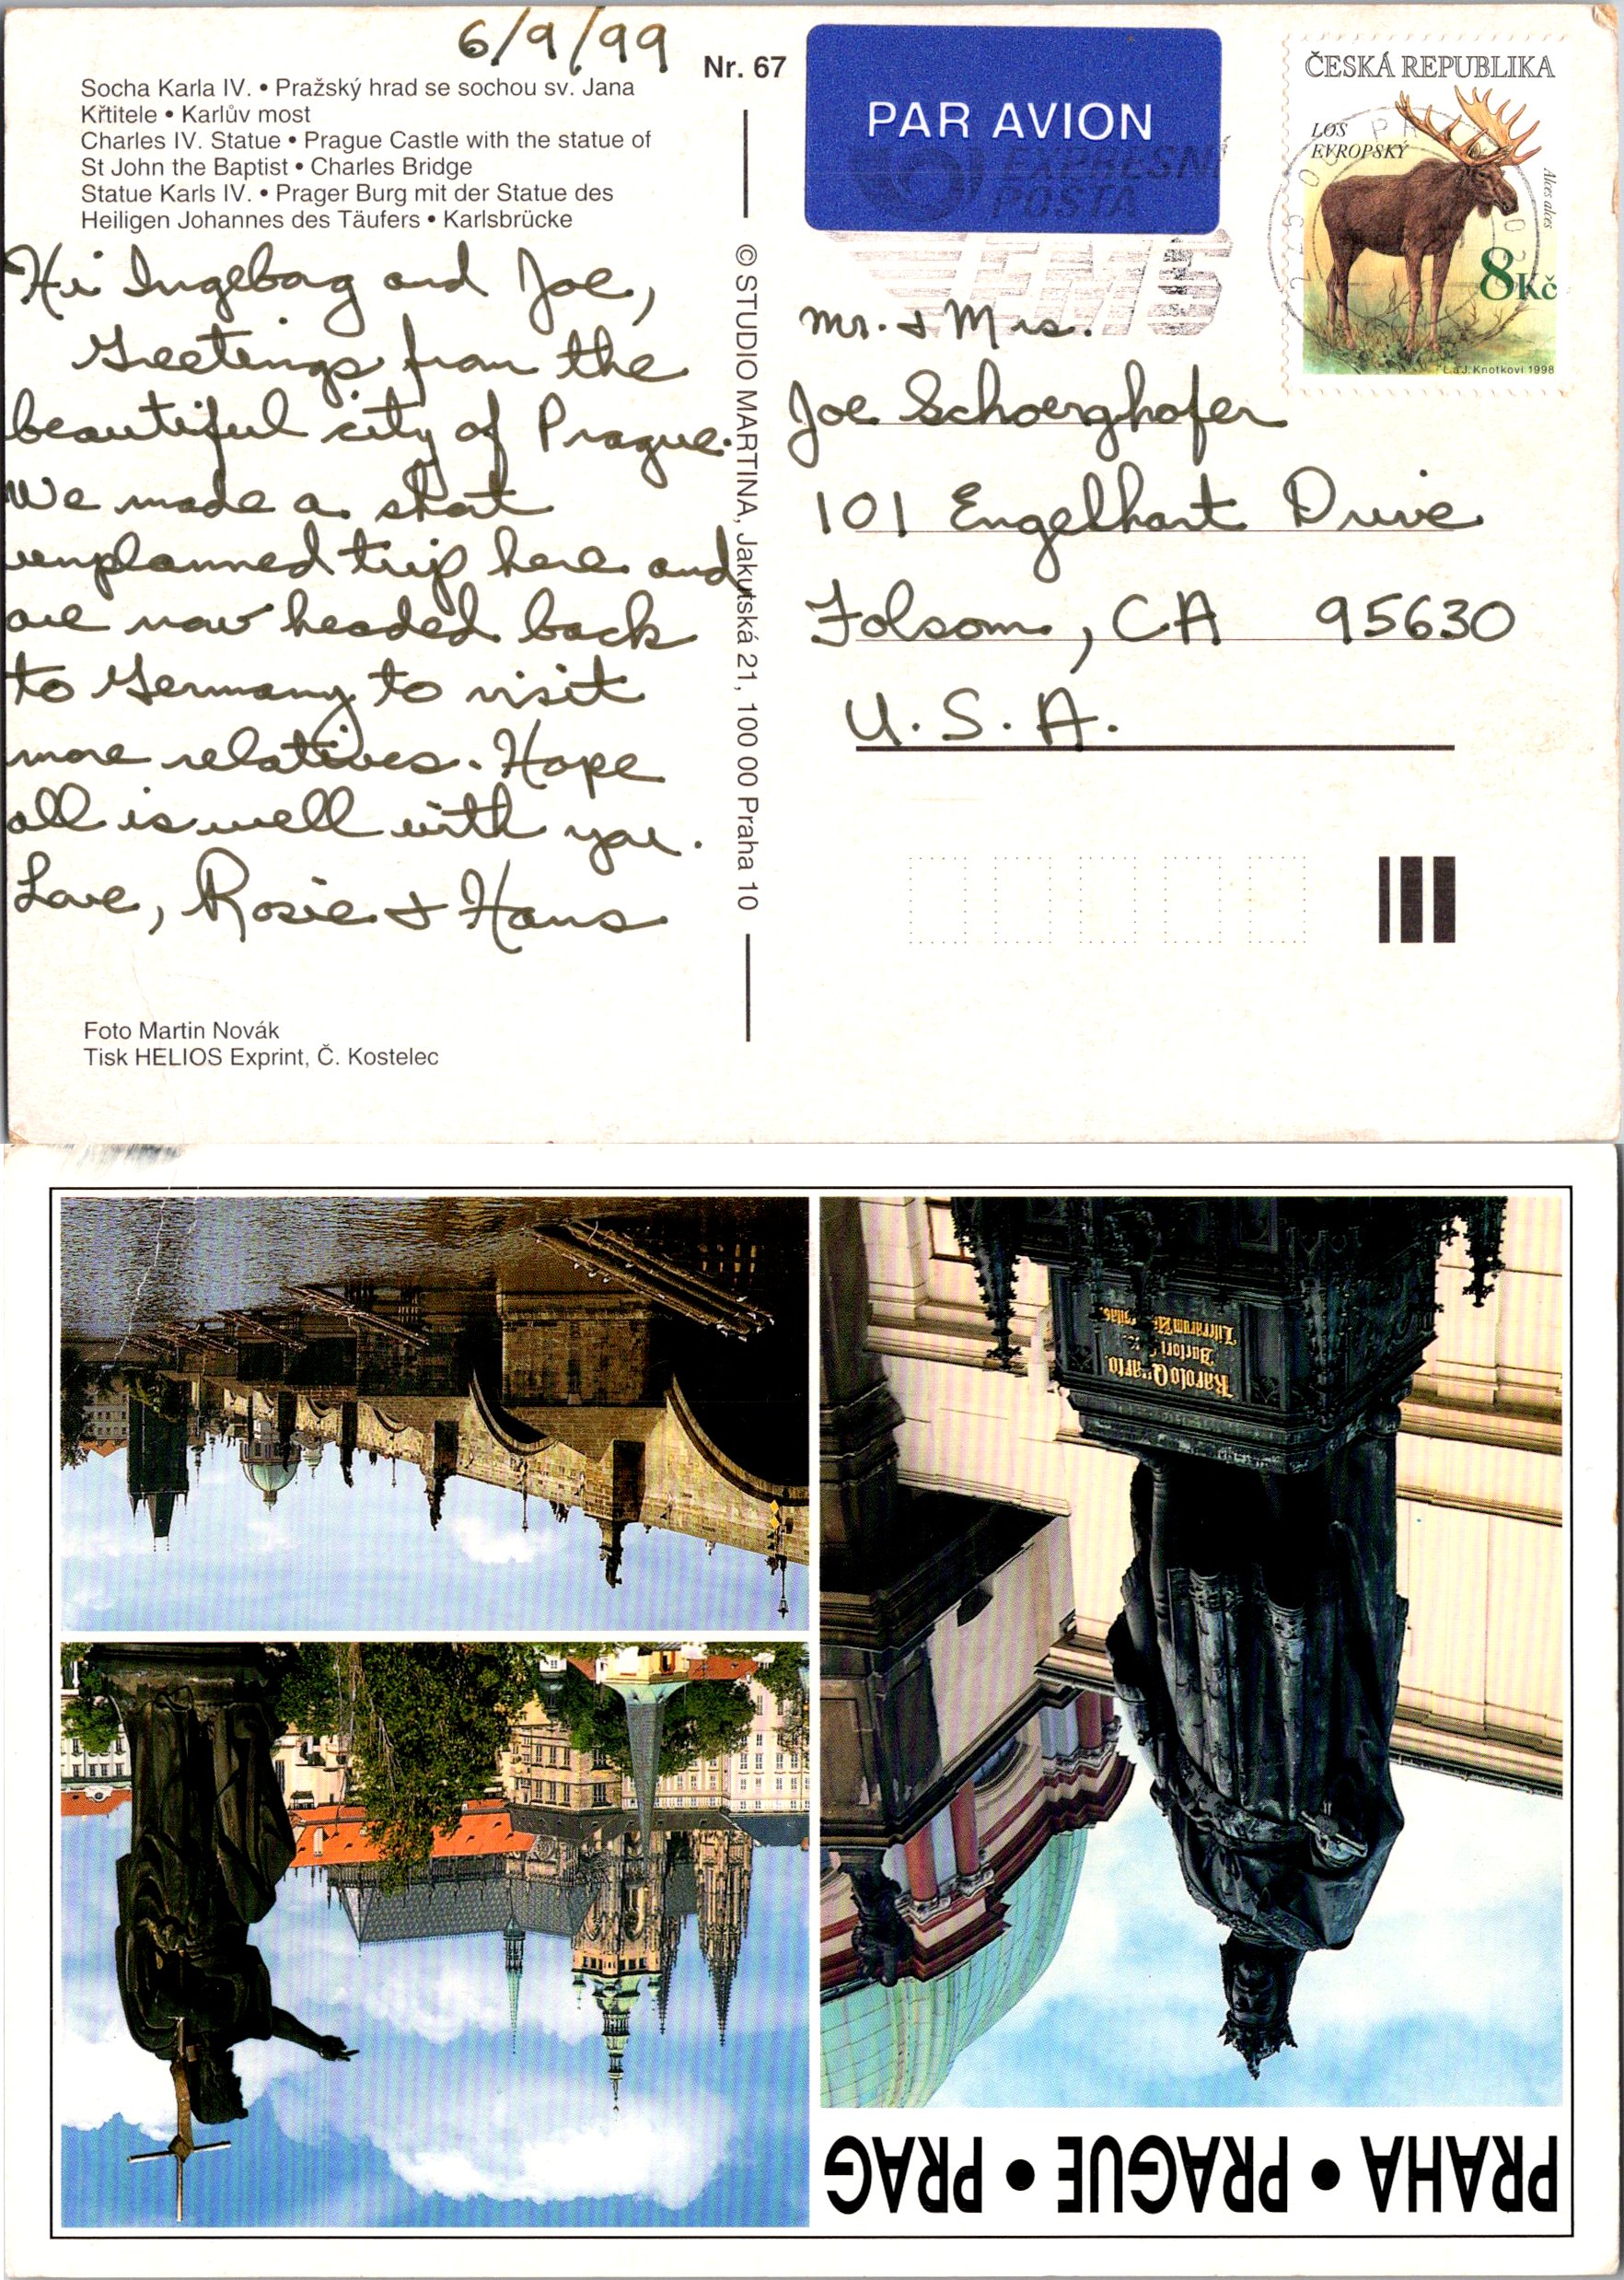 6/9/99
Nr. 67
Socha Karla IV. • Pražský hrad se sochou sv. Jana
Křtitele • Karlův most
Charles IV. Statue • Prague Castle with the statue of
St John the Baptist • Charles Bridge
Statue Karls IV. • Prager Burg mit der Statue des
Heiligen Johannes des Täufers • Karlsbrücke
Hi Ingeborg and Joe,
Greetings from the
beautiful city of Prague.
We made a short
unplanned trip here and
are now headed back
to Germany to visit
more relatives. Hope
all is well with you.
Love, Rosie + Hans
Foto Martin Novák
Tisk HELIOS Exprint, Č. Kostelec
© STUDIO MARTINA, Jakutská 21, 100 00 Praha 10
PAR AVION
EXPRESNÍ
POSTA
EMS
ČESKÁ REPUBLIKA
LOS
EVROPSKÝ
Alces alces
8Kč
L.a J. Knotkovi 1998
Mr. + Mrs.
Joe Schoerghofer
101 Engelhart Drive
Folsom, CA 95630
U.S.A.
Karolo Quarto
Literarum
PRAHA • PRAGUE • PRAG